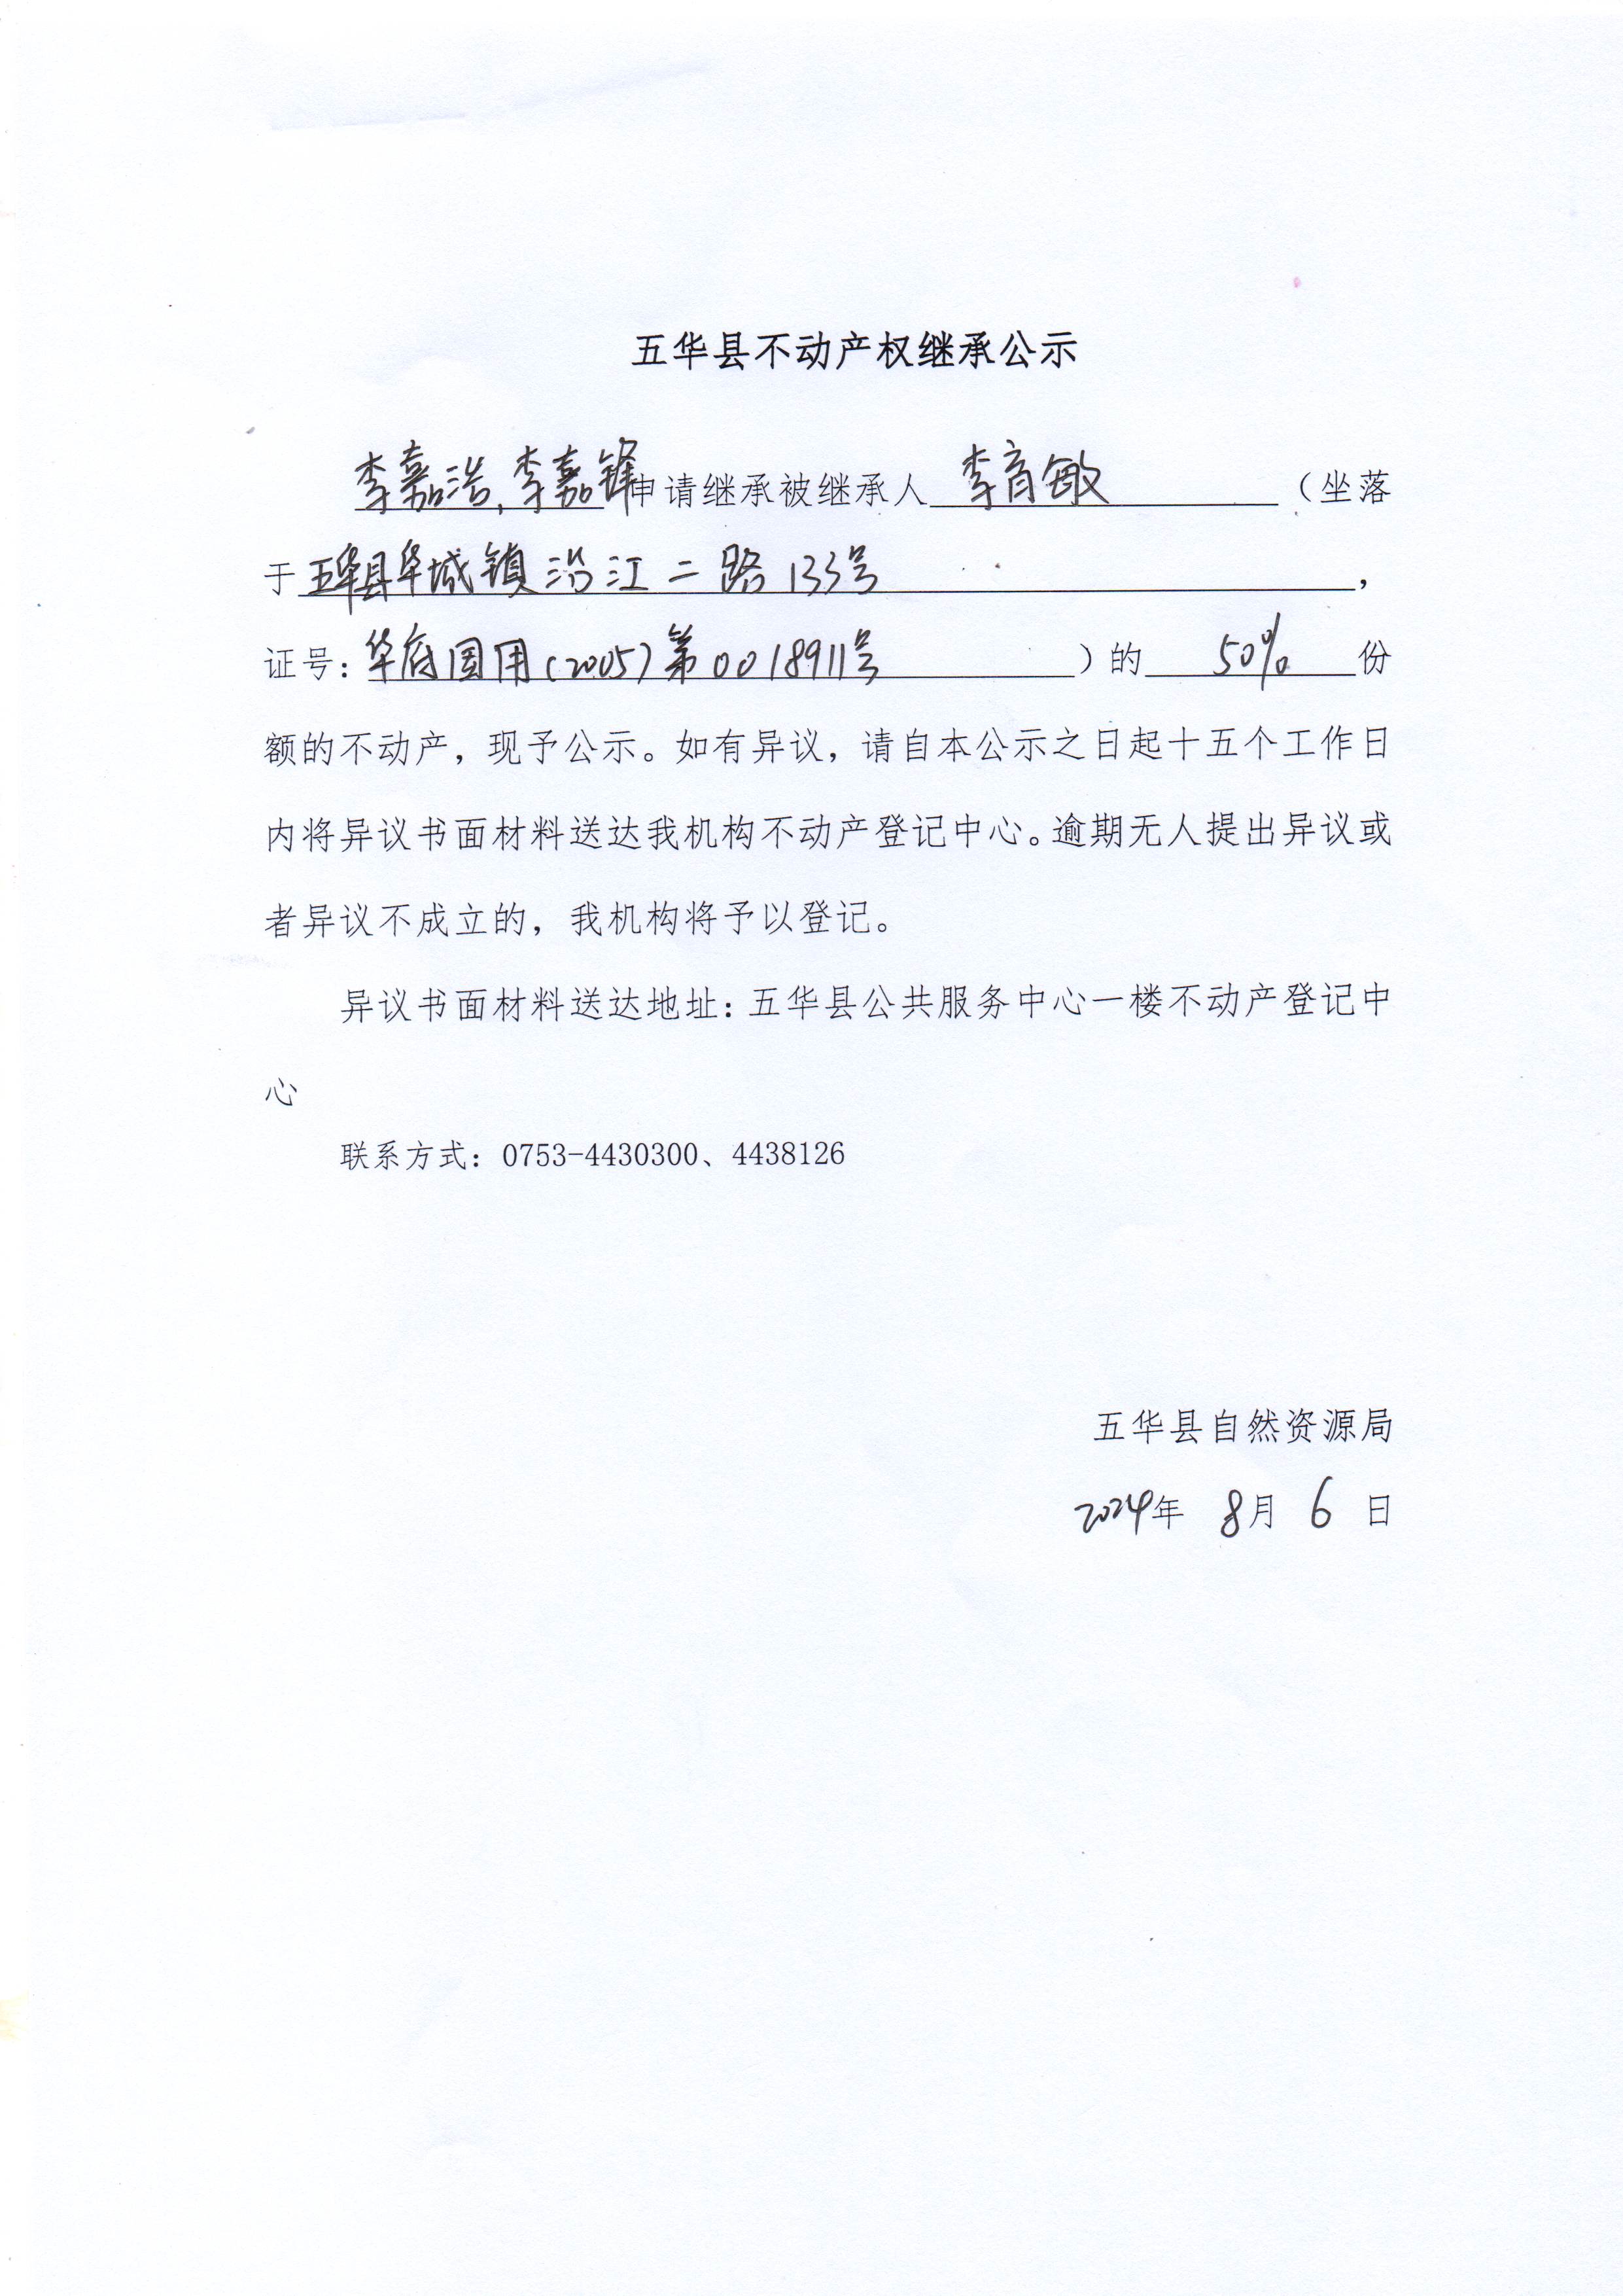 五华县不动产权继承公示
李嘉浩,李嘉锋申请继承被继承人李育敏（坐落
于五华县华城镇沿江二路133号，
证号：华府国用(2005)第0018911号）的50%份
额的不动产，现予公示。如有异议，请自本公示之日起十五个工作日
内将异议书面材料送达我机构不动产登记中心。逾期无人提出异议或
者异议不成立的，我机构将予以登记。
异议书面材料送达地址：五华县公共服务中心一楼不动产登记中
心
联系方式：0753-4430300、4438126
五华县自然资源局
2024年 8月 6 日